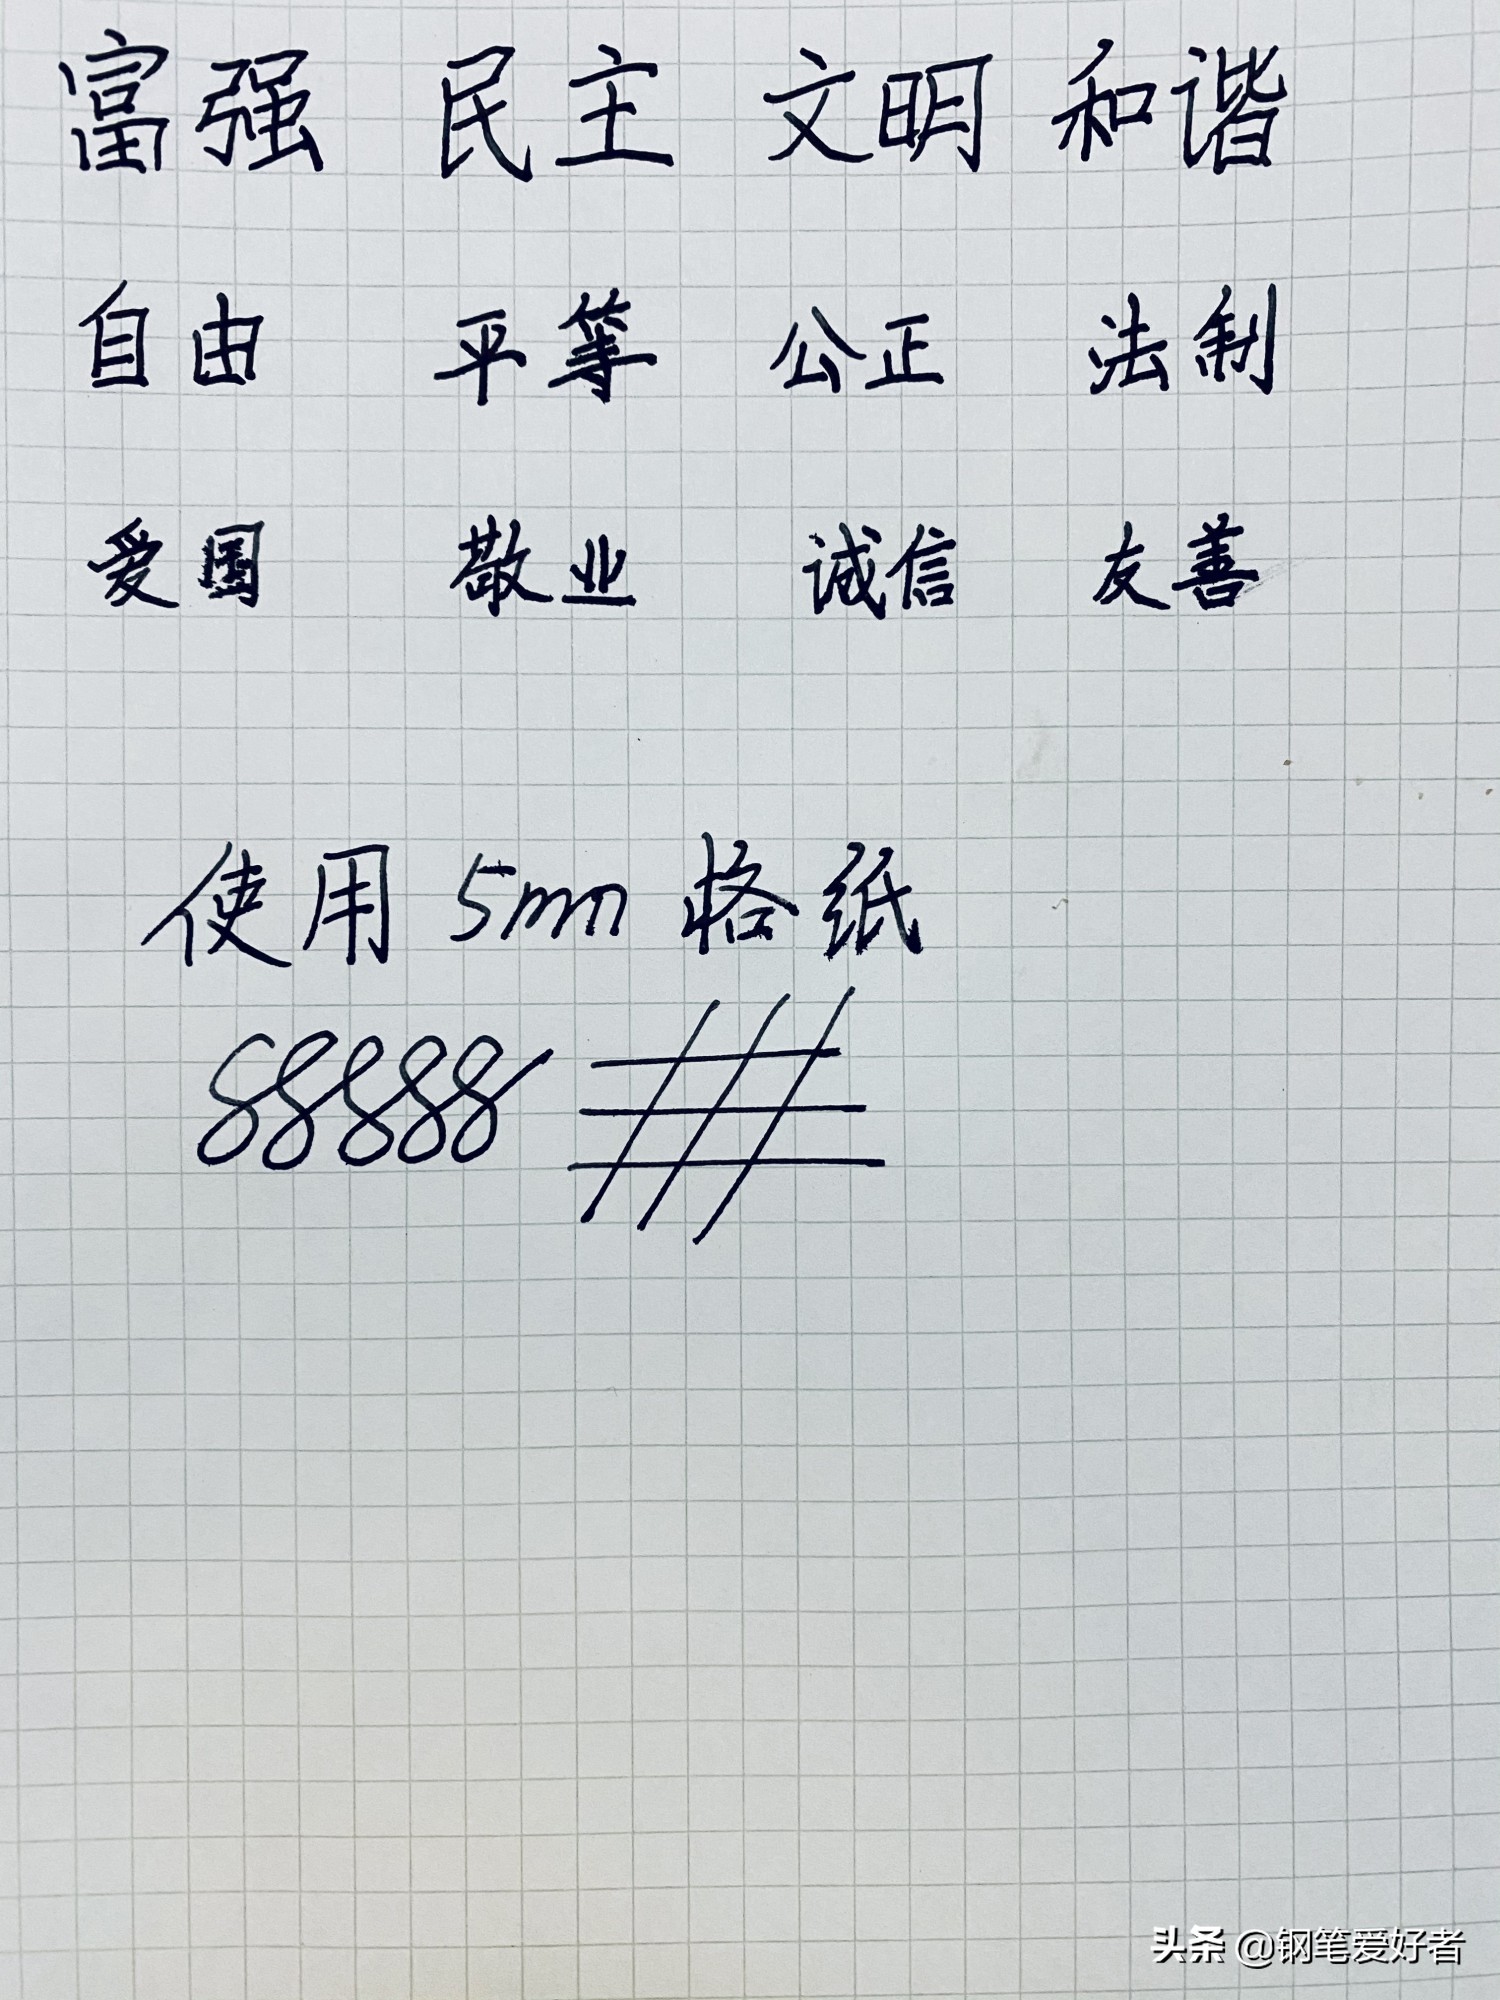 富强 民主 文明 和谐
自由 平等 公正 法制
爱国 敬业 诚信 友善
使用 5mm 格纸
88888
头条 @钢笔爱好者